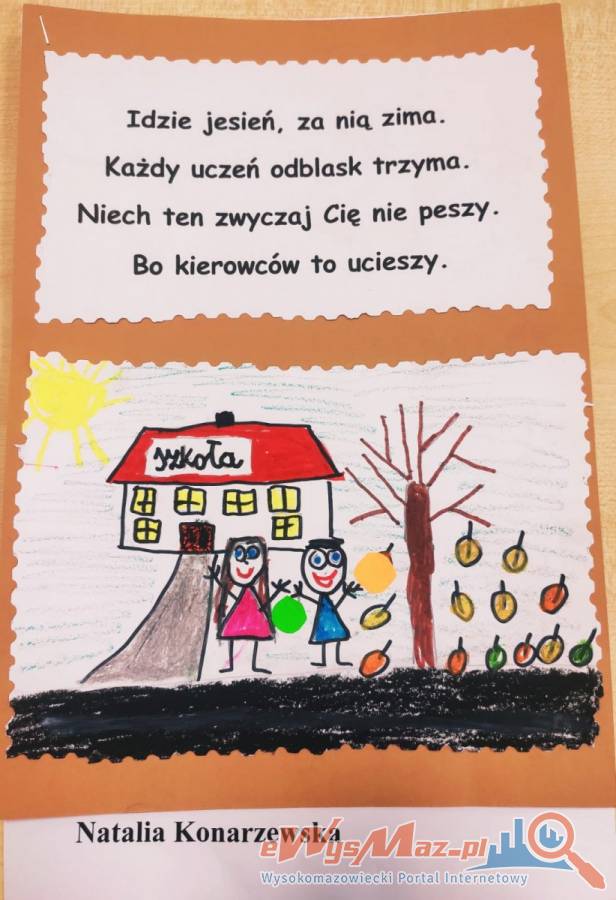 Idzie jesień, za nią zima.
Każdy uczeń odblask trzyma.
Niech ten zwyczaj Cię nie peszy.
Bo kierowców to ucieszy.
szkoła
Natalia Konarzewska
eWysMaz.pl
Wysokomazowiecki Portal Internetowy